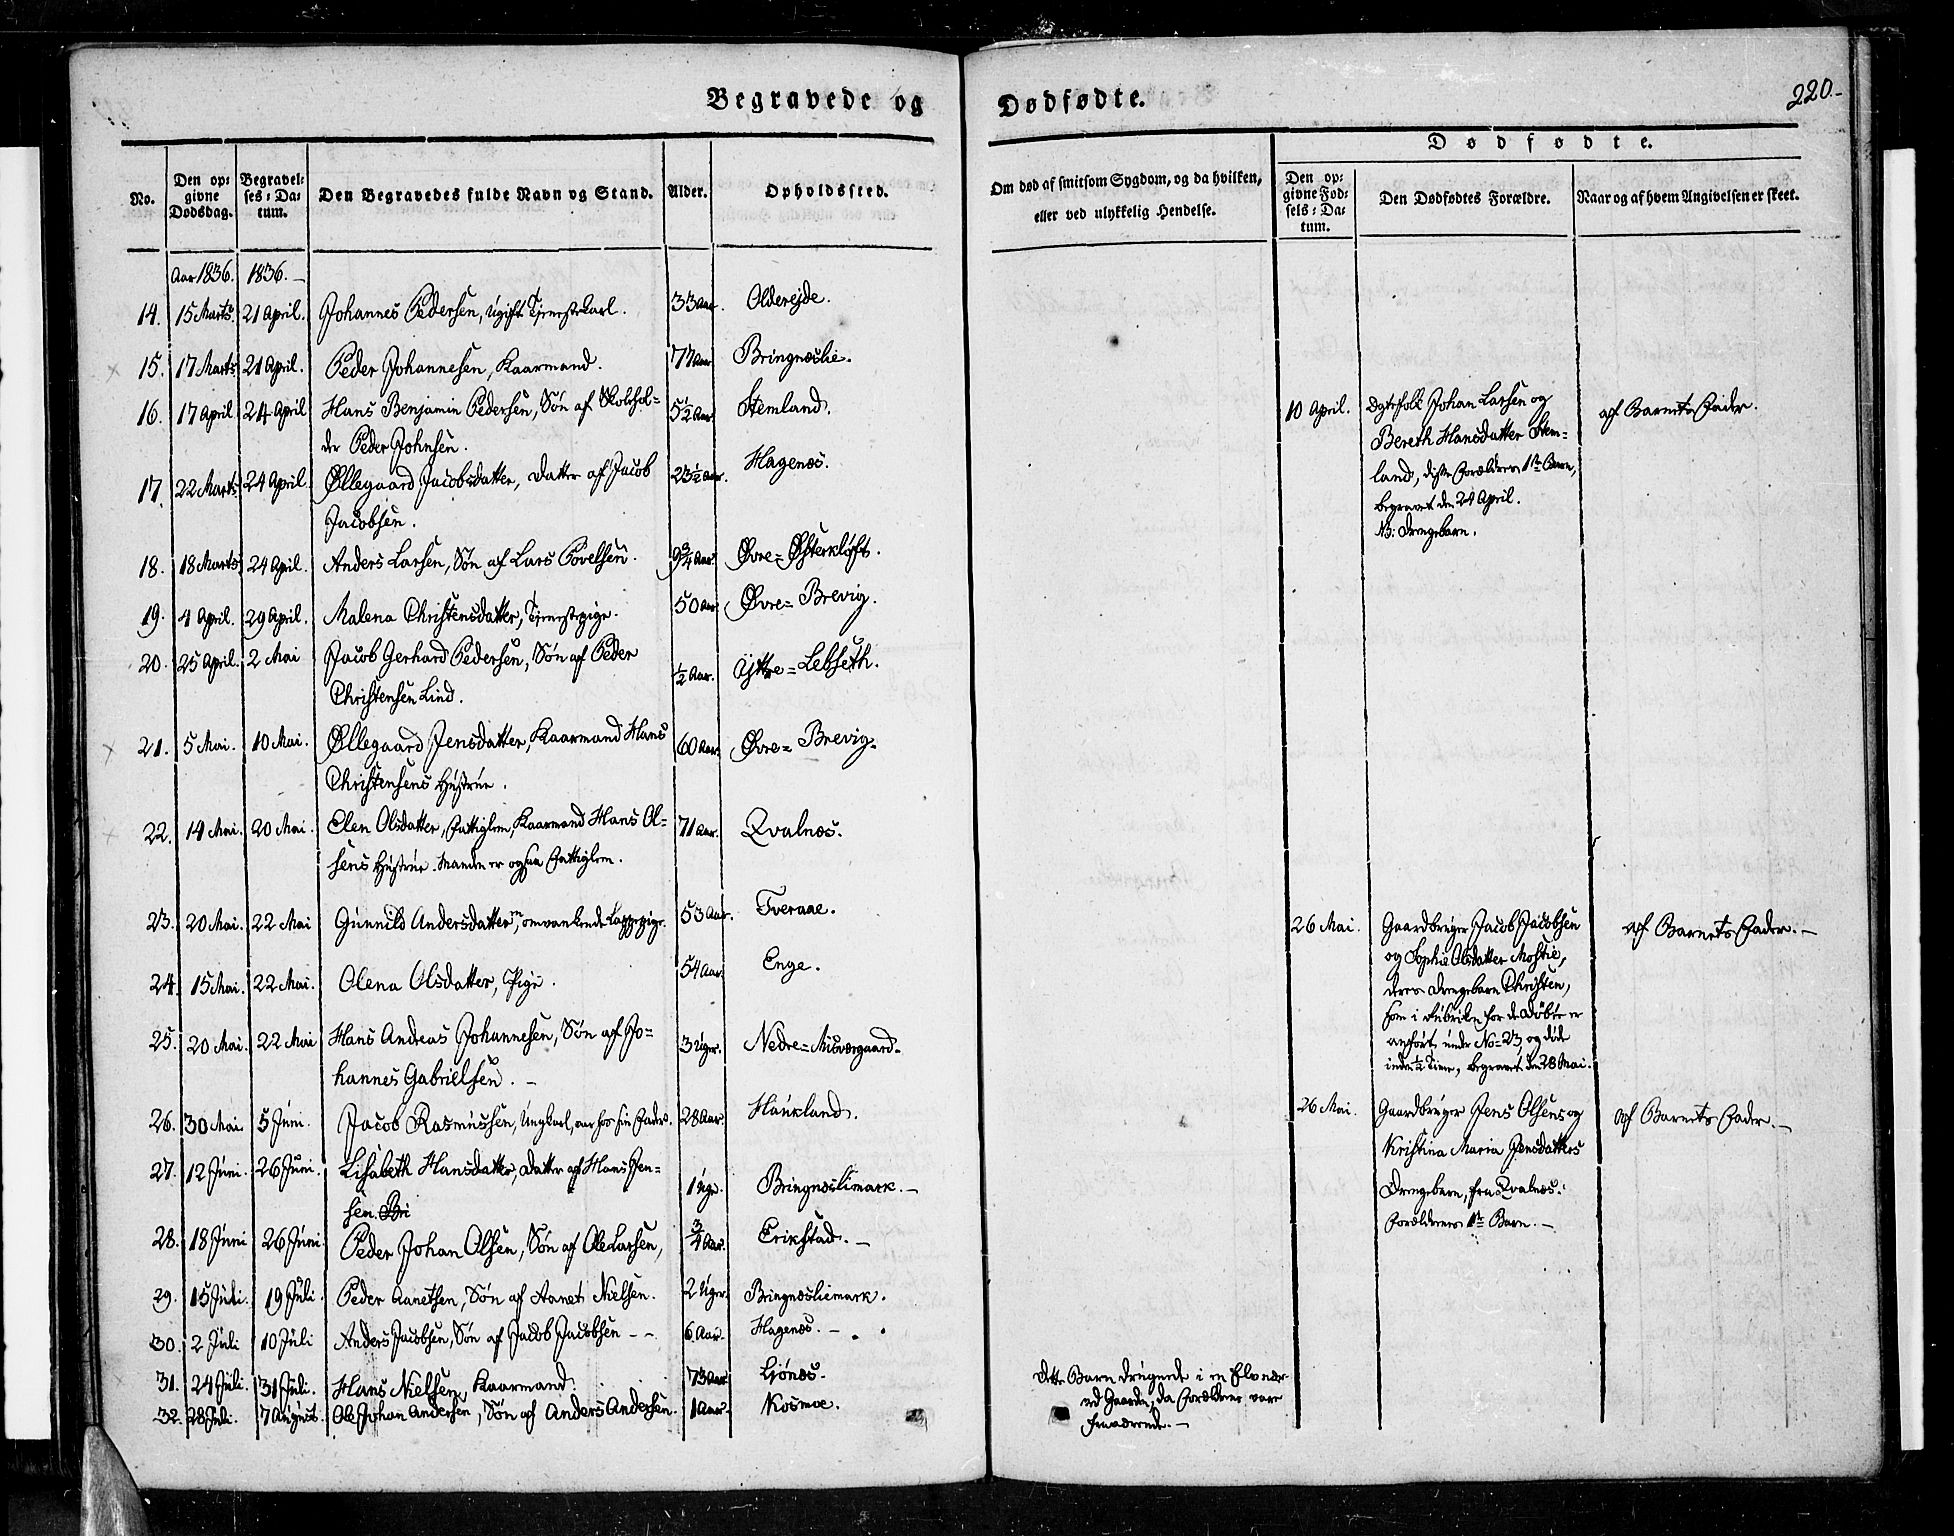 Begravede og
Dødfødte.
220.-
No.
Den op=
givne
Dødsdag.
Begravel=
ses=Da=
tum.
Den Begravedes fulde Navn og Stand.
Alder.
Opholdssted.
Om død af smitsom Sygdom, og da hvilken,
eller ved ulykkelig Hendelse.
Dødfødte.
Den op=
givne Fød=
sels=Da=
tum.
Den Dødfødtes Forældre.
Naar og af hvem Angivelsen er skeet.
Aar 1836. 1836.—
14. 15 Marts. 21 April. Johannes Pedersen, Ugift Tjenestekarl. 33 Aar. Oldereide.
15. 17 Marts. 21 April. Peder Johannesen, Kaarmand. 77 Aar Bringnæslie.
16. 17 April. 24 April Hans Benjamin Pedersen, Søn af Skolehol= 5½ Aar Stemland.
der Peder Johnsen.
17. 22 Marts 24 April Øllegaard Jacobsdatter, Datter af Jacob 23½ Aar. Hagenæs.
Jacobsen.
18. 18 Marts 24 April. Anders Larsen, Søn af Lars Povelsen. 9¾ Aar. Øvre=Østerkløft.
19. 4 April. 29 April. Malena Christensdatter, Tjenestepige. 50 Aar Øvre=Brevig.
20. 25 April. 2 Mai Jacob Gerhard Pedersen, Søn af Peder ½ Aar. Yttre=Lebseth.
Christensen Lind.
21. 5 Mai. 10 Mai. Øllegaard Jensdatter, Kaarmand Hans 60 Aar. Øvre=Brevig.
Christensens Hustrue.
22. 14 Mai. 20 Mai. Elen Olsdatter, Fattiglem, Kaarmand Hans Ol= 71 Aar. Qvalnæs.
sens Hustrue. Manden er ogsaa Fattiglem.
23. 20 Mai. 22 Mai Gunnild Andersdatter, omvankende Lappepige. 53 Aar. Tveraae.
24. 15 Mai. 22 Mai. Olena Olsdatter, Pige. 54 Aar. Enge.
25. 20 Mai. 22 Mai Hans Andreas Johannesen, Søn af Jo= 3 Uger. Nedre=Misværgaard.
hannes Gabrielsen.—
26. 30 Mai 5 Juni. Jacob Rasmussen, Ungkarl, var hos sin Fader. 28 Aar. Haukland.
27. 12 Juni. 26 Juni. Lisabeth Hansdatter, Datter af Hans Jen= 1 Uge. Bringnæslimark.—
sen. Bri
28. 18 Juni 26 Juni. Peder Johan Olsen, Søn af Ole Larsen, ¾ Aar. Erikstad.—
29. 15 Juli. 19 Juli. Peder Aanetsen, Søn af Aanet Nielsen. 2 Uger. Bringnæsliemark.
30. 2 Juli 10 Juli Anders Jacobsen, Søn af Jacob Jacobsen — — 6 Aar. Hagenæs.—
31. 24 Juli. 31 Juli. Hans Nielsen, Kaarmand. 73 Aar Ljønæs.
32. 28 Juli. 7 August. Ole Johan Andersen, Søn af Anders Andersen. 1 Aar. Kosmoe.
Dette Barn druknede i en Elv nær
ved Gaarden, da Forældrene vare
fraværende.—
10 April. Johan Larsen og af Barnets Fader.
Bereth Hansdatter Stem=
land, disse Forældres 1ste Barn,
begravet den 24 April.
NB: Drengebarn.
26 Mai. Gaardbruger Jacob Jacobsen af Barnets Fader.—
og Sophie Olsdatter
deres Drengebarn Christen,
som i Rubriken for de Døbte er
anført under No 23, og døde
inden ½ Time, begravet den 28 Mai.
26 Mai. Gaardbruger Jens Olsens og af Barnets Fader.—
Kristina Maria Jensdatters
Drengebarn, fra Qvalnæs.
Forældrenes 1ste Barn.—